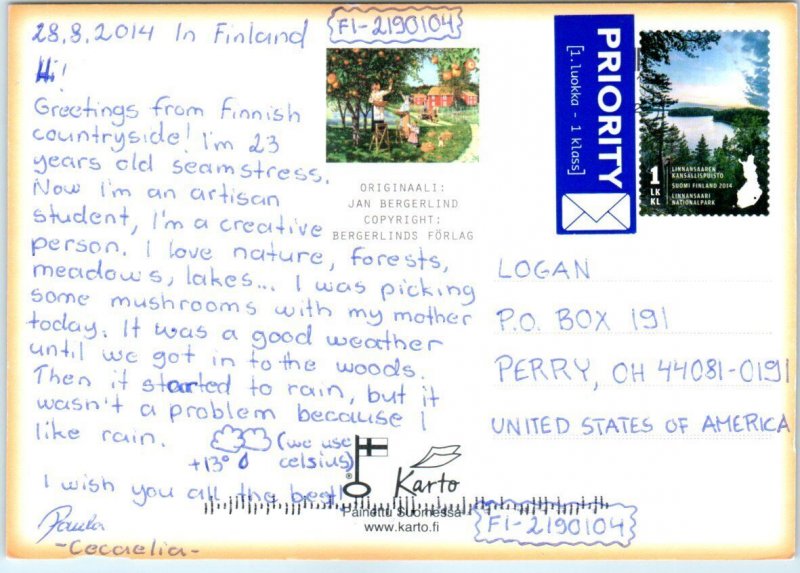 28.8.2014 In Finland
FI-2190104
Hi!
Greetings from Finnish
countryside! I'm 23
years old seamstress.
Now I'm an artisan
student, I'm a creative
person. I love nature, forests,
meadows, lakes... I was picking
some mushrooms with my mother
today. It was a good weather
until we got in to the woods.
Then it started to rain, but it
wasn't a problem because I
like rain.
(we use
+13° celsius)
I wish you all the best!
-Cecaelia-
ORIGINAALI:
JAN BERGERLIND
COPYRIGHT:
BERGERLINDS FÖRLAG
PRIORITY
[1. luokka - 1 klass]
1
LK
KL
LINNANSAAREN
KANSALLISPUISTO
SUOMI FINLAND 2014
LINNANSAARI
NATIONALPARK
LOGAN
P.O. BOX 191
PERRY, OH 44081-0191
UNITED STATES OF AMERICA
® Karto
Painettu Suomessa
www.karto.fi
FI-2190104